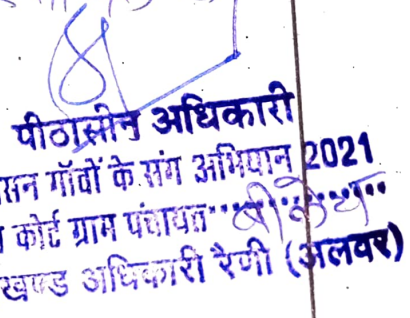 पीठासीन अधिकारी
सन गॉवों के संग अभियान 2021
कोर्ट ग्राम पंचायत
खण्ड अधिकारी रैणी (अलवर)